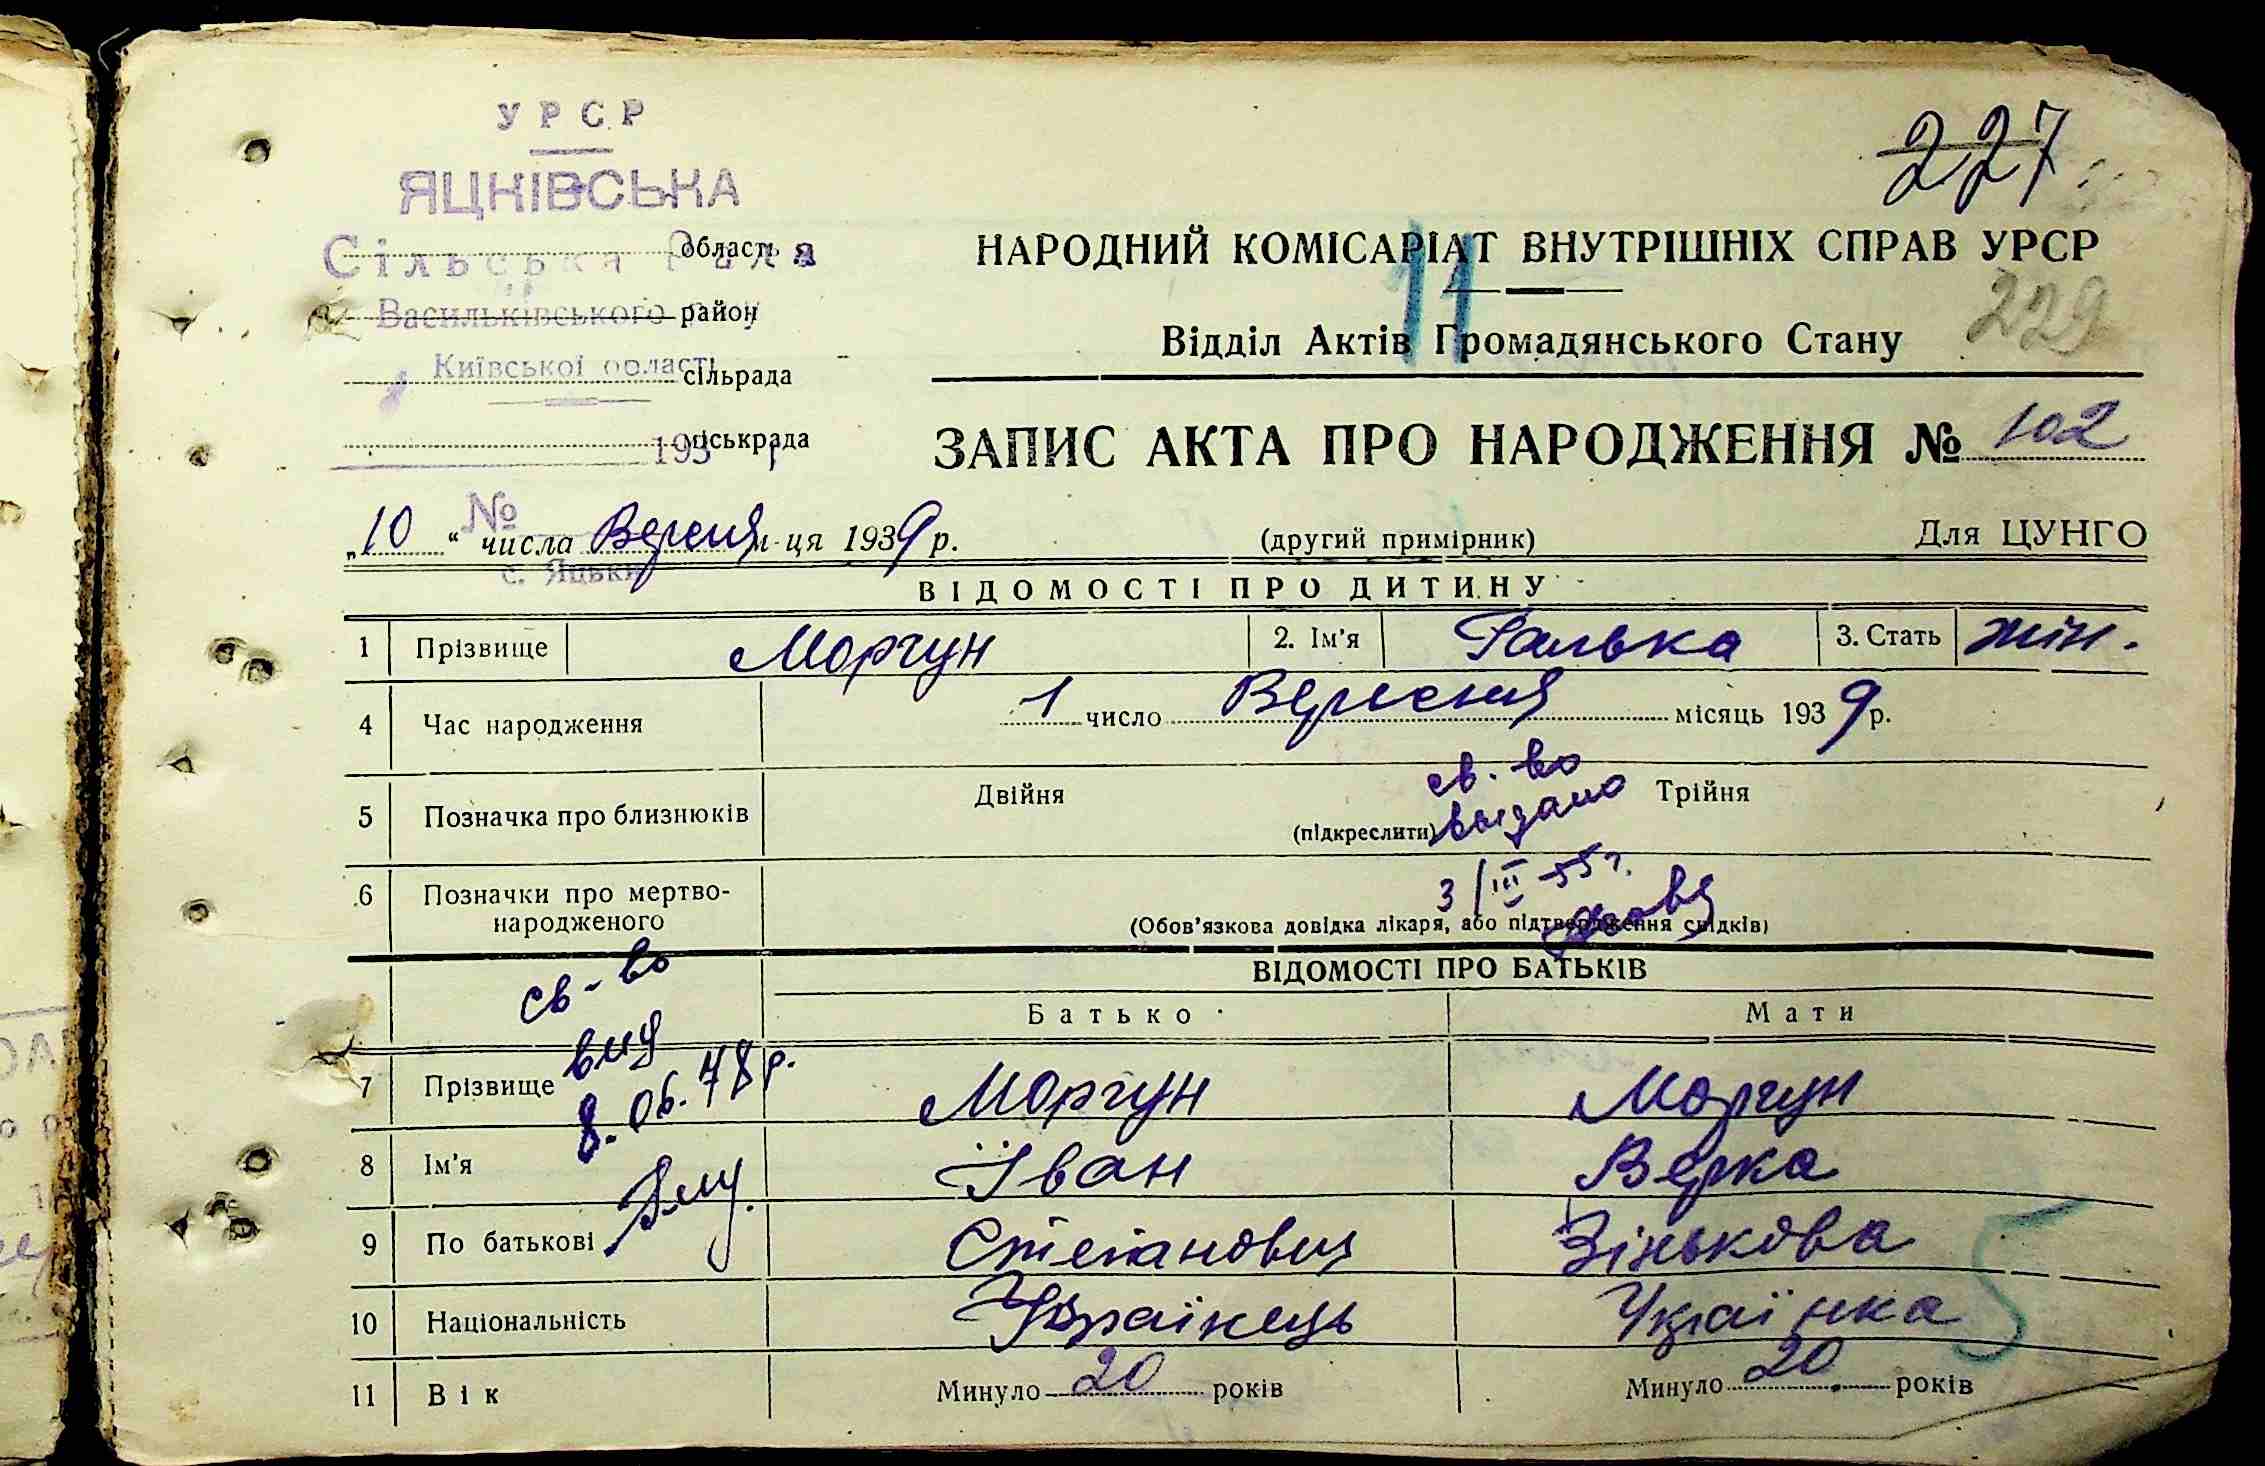 УРСР
ЯЦКІВСЬКА
Сільська Рада
область
Васильківського району
район
Київської області
сільрада
міськрада
193 р
№
с. Яцьки
227
НАРОДНИЙ КОМІСАРІАТ ВНУТРІШНІХ СПРАВ УРСР
11
229
Відділ Актів Громадянського Стану
ЗАПИС АКТА ПРО НАРОДЖЕННЯ № 102
„10“ числа Вересня м-ця 1939 р.
(другий примірник)
Для ЦУНГО
ВІДОМОСТІ ПРО ДИТИНУ
1 Прізвище Моргун 2. Ім'я Галька 3. Стать жін.
4 Час народження 1 число Вересня місяць 1939 р.
5 Позначка про близнюків Двійня (підкреслити) Трійня
св-во
выдано
3/III-55 г.
6 Позначки про мертво-
народженого
(Обов'язкова довідка лікаря, або підтвердження свідків)
ВІДОМОСТІ ПРО БАТЬКІВ
Батько Мати
св-во
вид
8.06.78 р.
7 Прізвище Моргун Моргун
8 Ім'я Іван Верка
9 По батькові Степанович Зінькова
10 Національність Українець Українка
11 Вік Минуло 20 років Минуло 20 років